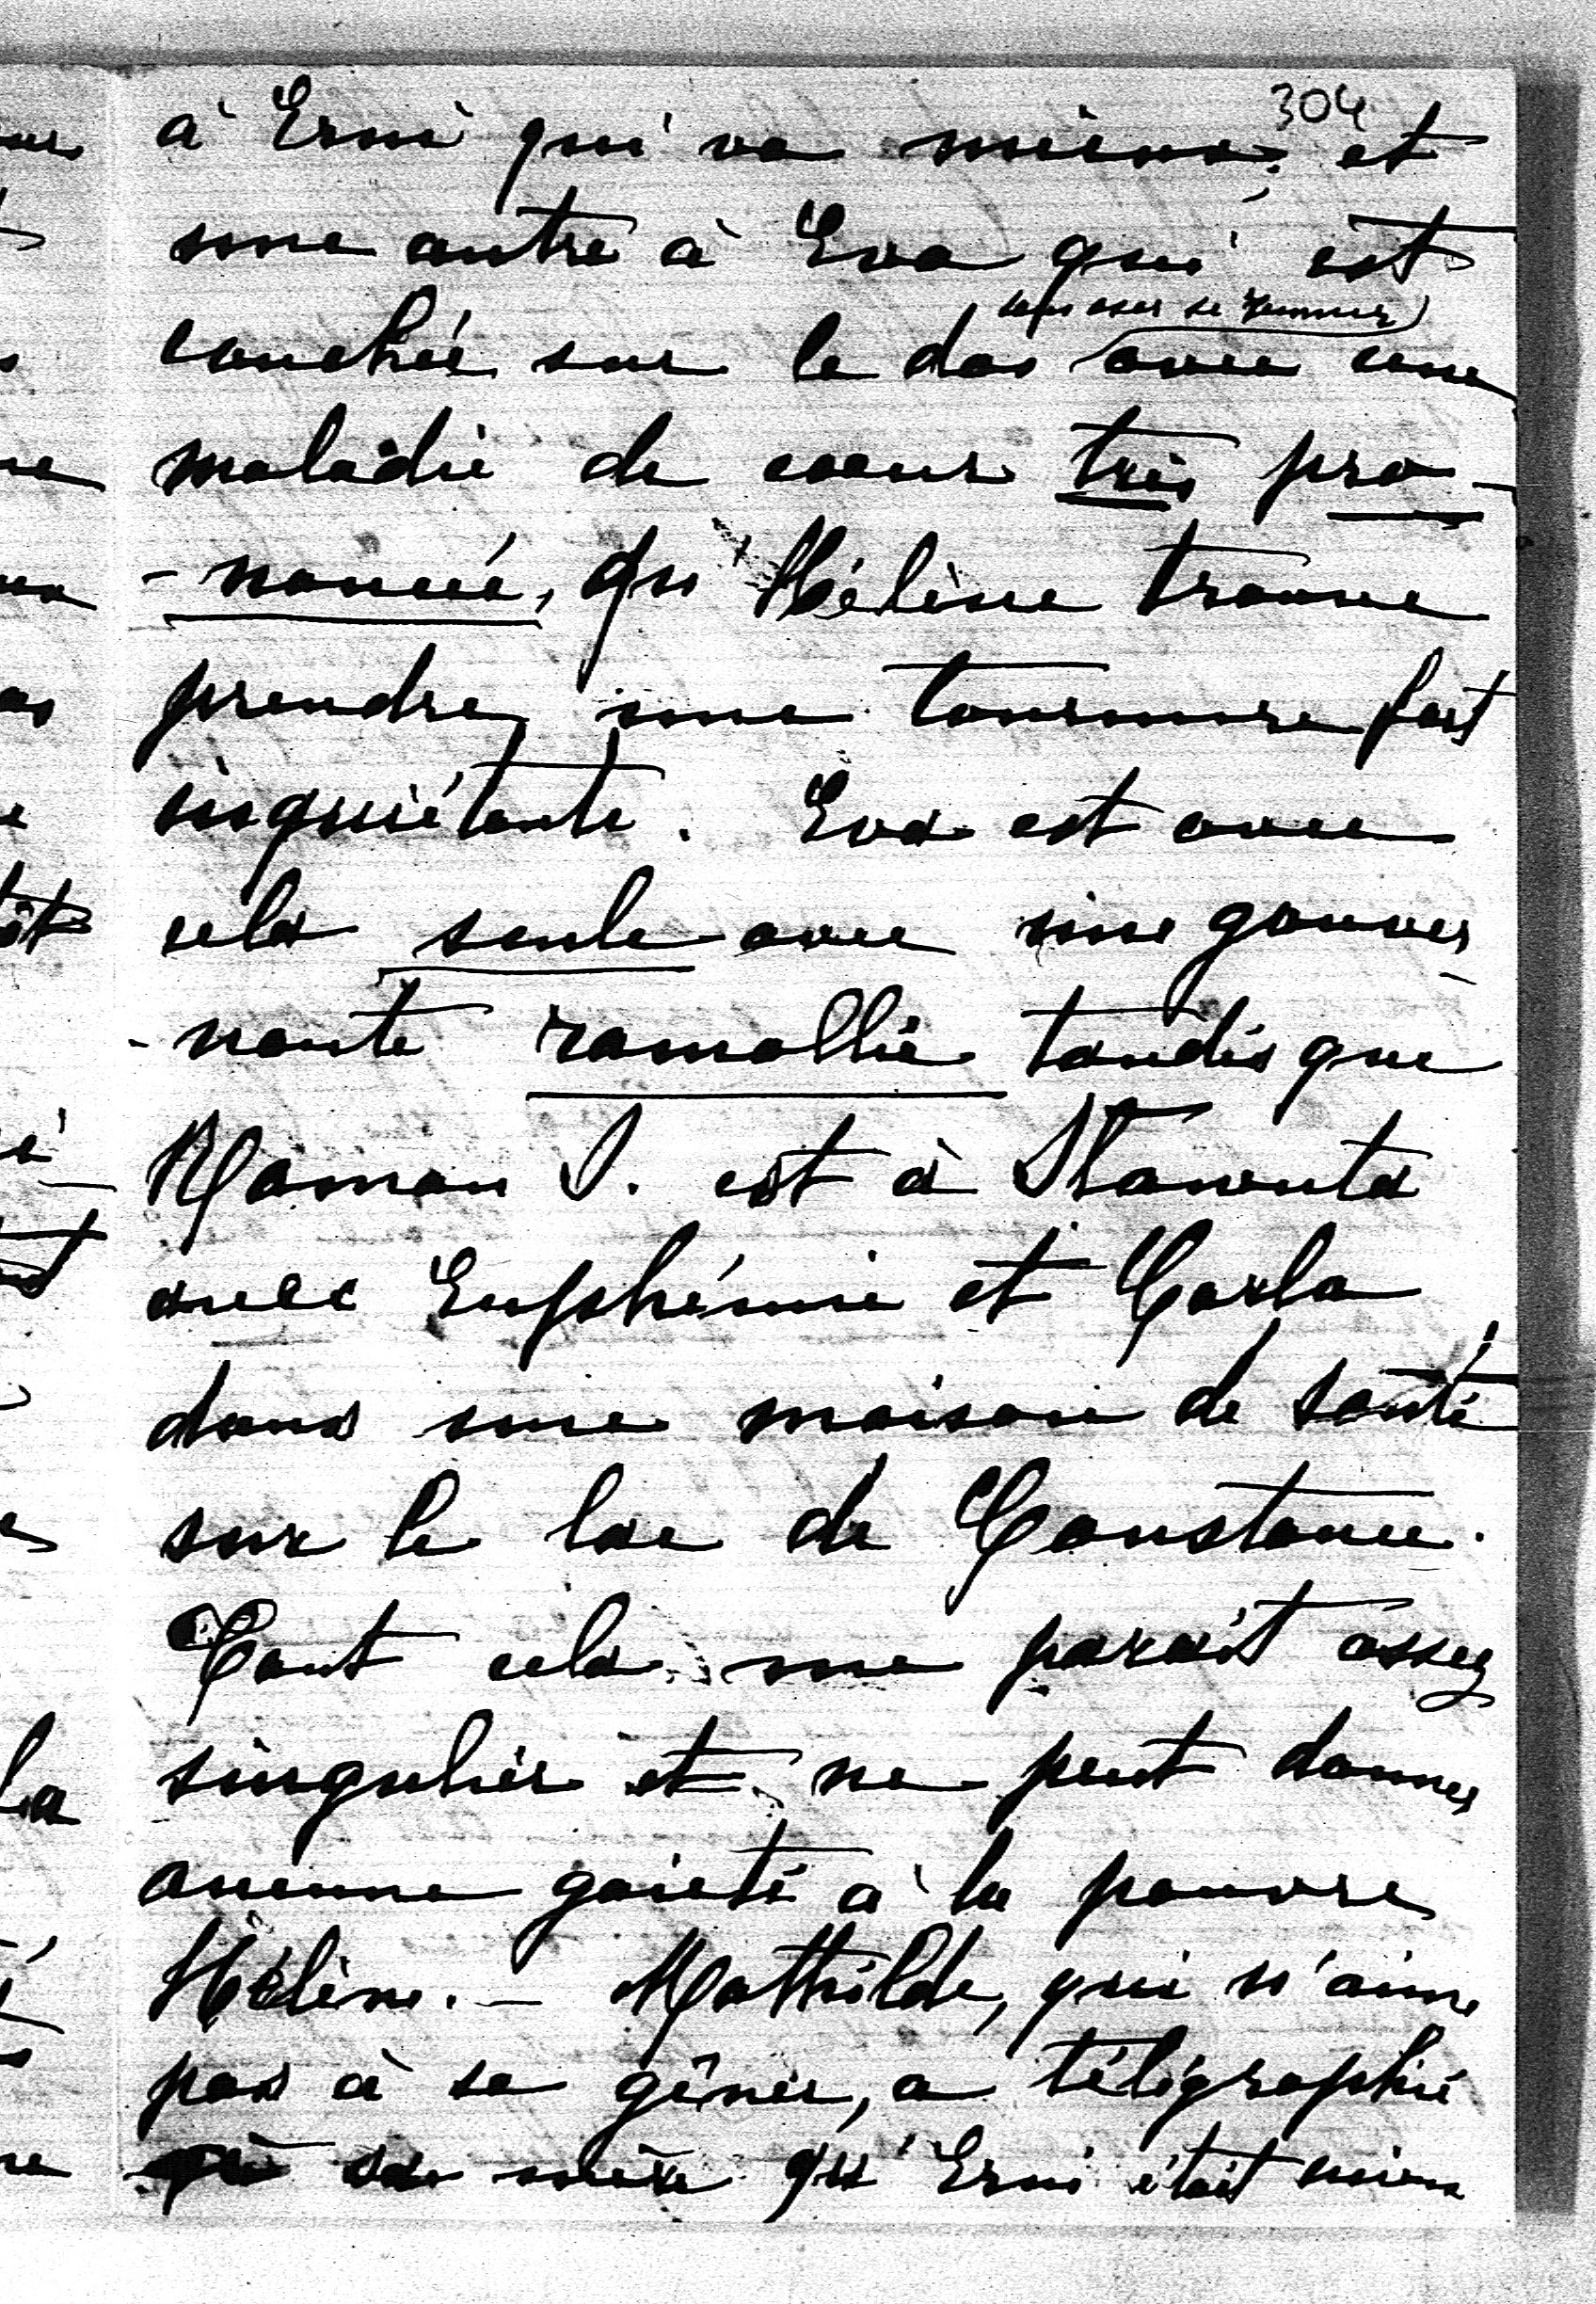 304
à Erni qui va mieux; et
une autre à Eva qui est
sans oser se remuer
couchée sur le dos avec une
maladie de coeur très pro-
-noncée, qu'Hélène trouve
prendre une tournure fort
inquiétante. Eva est avec
cela seule avec une gouver-
-nante ramollie tandis que
Maman S. est à Slawuta
avec Euphémie et Carla
dans une maison de santé
sur le lac de Constance.
Tout cela me paraît assez
singulier et ne peut donner
aucune gaieté à la pauvre
Hélène. - Mathilde, qui n'aime
pas à se gêner, a télégraphié
à sa mère qu'Erni était mieux